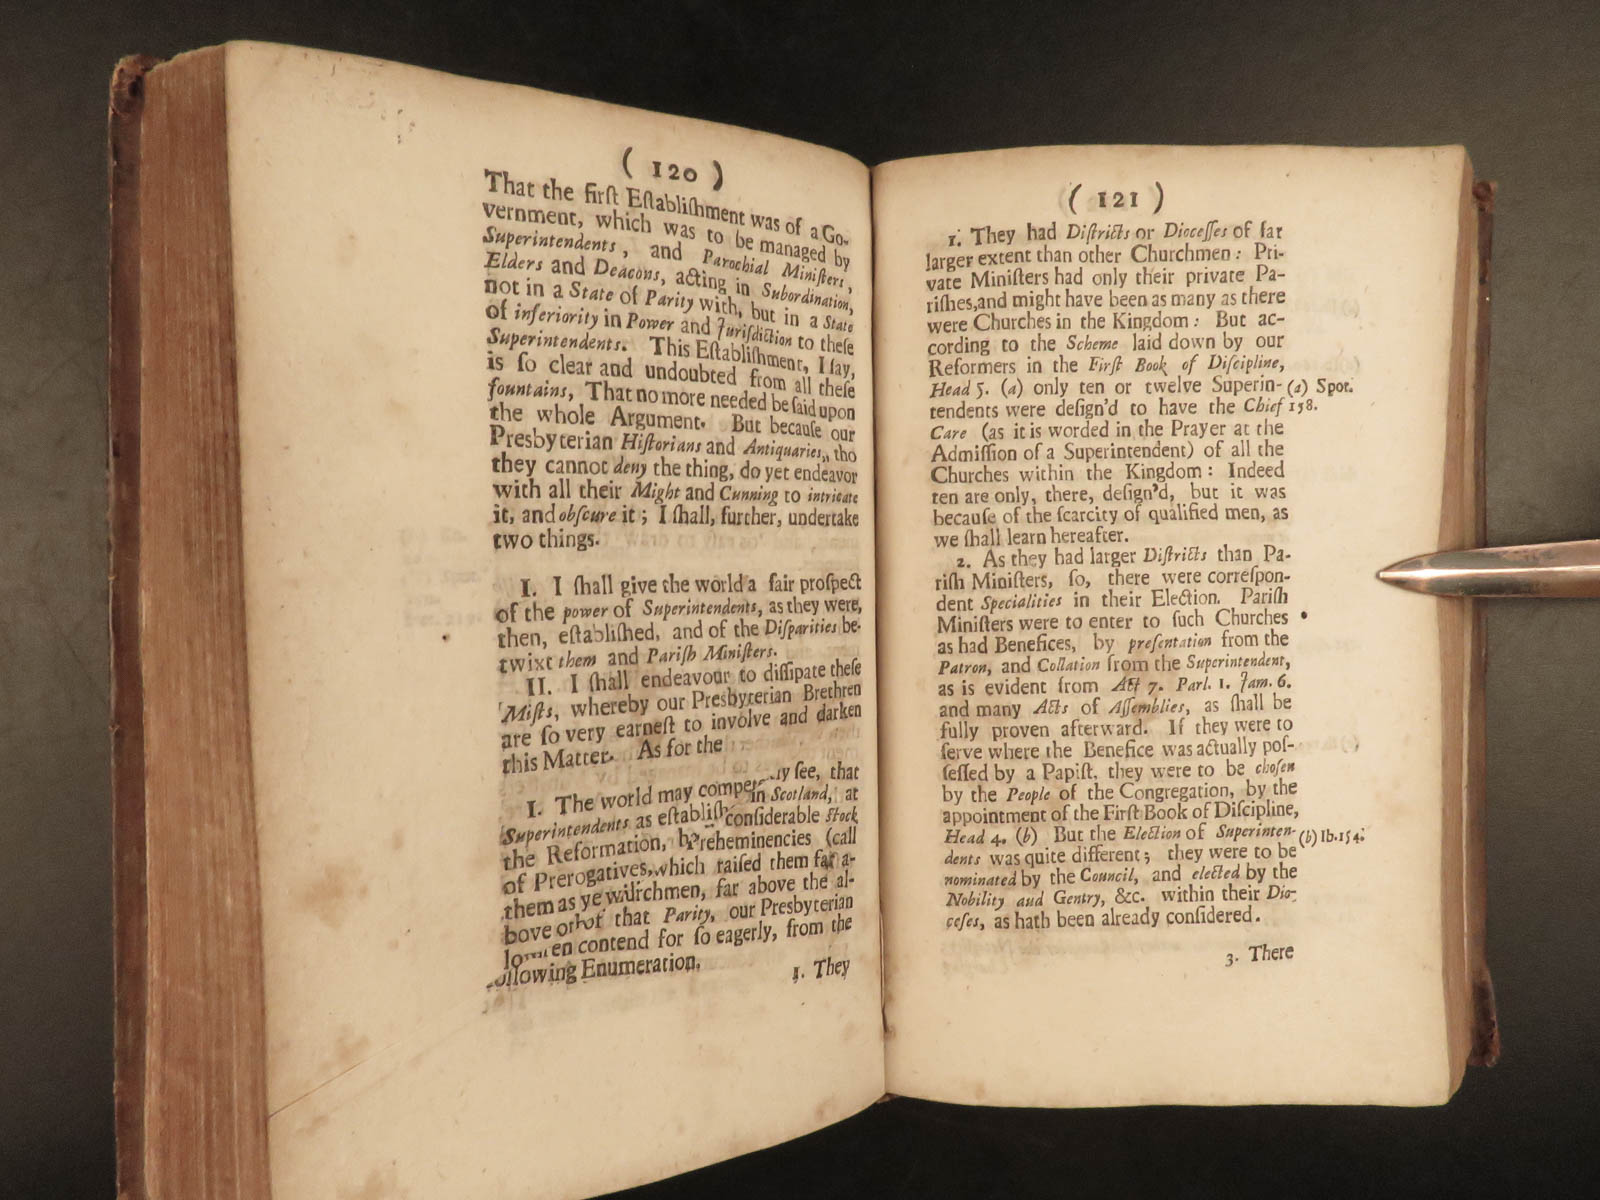 ( 120 )
That the firſt Eſtabliſhment was of a Go-
vernment, which was to be managed by
Superintendents, and Parochial Miniſters,
Elders and Deacons, acting in Subordination,
not in a State of Parity with, but in a State
of inferiority in Power and Juriſdiction to theſe
Superintendents. This Eſtabliſhment, I ſay,
is ſo clear and undoubted from all theſe
fountains, That no more needed be ſaid upon
the whole Argument. But becauſe our
Presbyterian Hiſtorians and Antiquaries, tho
they cannot deny the thing, do yet endeavor
with all their Might and Cunning to intricate
it, and obſcure it; I ſhall, further, undertake
two things.
I. I ſhall give the world a fair proſpect
of the power of Superintendents, as they were,
then, eſtabliſhed, and of the Diſparities be-
twixt them and Pariſh Miniſters.
II. I ſhall endeavour to diſſipate theſe
Miſts, whereby our Presbyterian Brethren
are ſo very earneſt to involve and darken
this Matter. As for the
I. The world may ſee, that
Superintendents as in Scotland, at
the Reformation, conſiderable ſtock
of Prerogatives, Preheminencies (call
them as ye which raiſed them far a-
bove far above the al-
that Parity, our Presbyterian
contend for ſo eagerly, from the
following Enumeration.
1. They
( 121 )
1. They had Diſtricts or Dioceſſes of far
larger extent than other Churchmen: Pri-
vate Miniſters had only their private Pa-
riſhes, and might have been as many as there
were Churches in the Kingdom: But ac-
cording to the Scheme laid down by our
Reformers in the Firſt Book of Diſcipline,
Head 5. (a) only ten or twelve Superin- (a) Spot.
tendents were deſign'd to have the Chief 158.
Care (as it is worded in the Prayer at the
Admiſſion of a Superintendent) of all the
Churches within the Kingdom: Indeed
ten are only, there, deſign'd, but it was
becauſe of the ſcarcity of qualified men, as
we ſhall learn hereafter.
2. As they had larger Diſtricts than Pa-
riſh Miniſters, ſo, there were correſpon-
dent Specialities in their Election. Pariſh
Miniſters were to enter to ſuch Churches
as had Benefices, by preſentation from the
Patron, and Collation from the Superintendent,
as is evident from Act 7. Parl. 1. Jam. 6.
and many Acts of Aſſemblies, as ſhall be
fully proven afterward. If they were to
ſerve where the Benefice was actually poſ-
ſeſſed by a Papiſt, they were to be choſen
by the People of the Congregation, by the
appointment of the Firſt Book of Diſcipline,
Head 4. (b) But the Election of Superinten- (b) Ib. 154.
dents was quite different; they were to be
nominated by the Council, and elected by the
Nobility aud Gentry, &c. within their Dio-
ceſes, as hath been already conſidered.
3. There